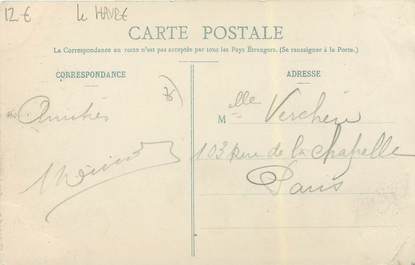 12€ Le HAVRE
CARTE POSTALE
La Correspondance au recto n'est pas acceptée par tous les Pays Étrangers. (Se renseigner à la Poste.)
CORRESPONDANCE
ADRESSE
Amitiés
Melle
103 Rue de la Chapelle
Paris